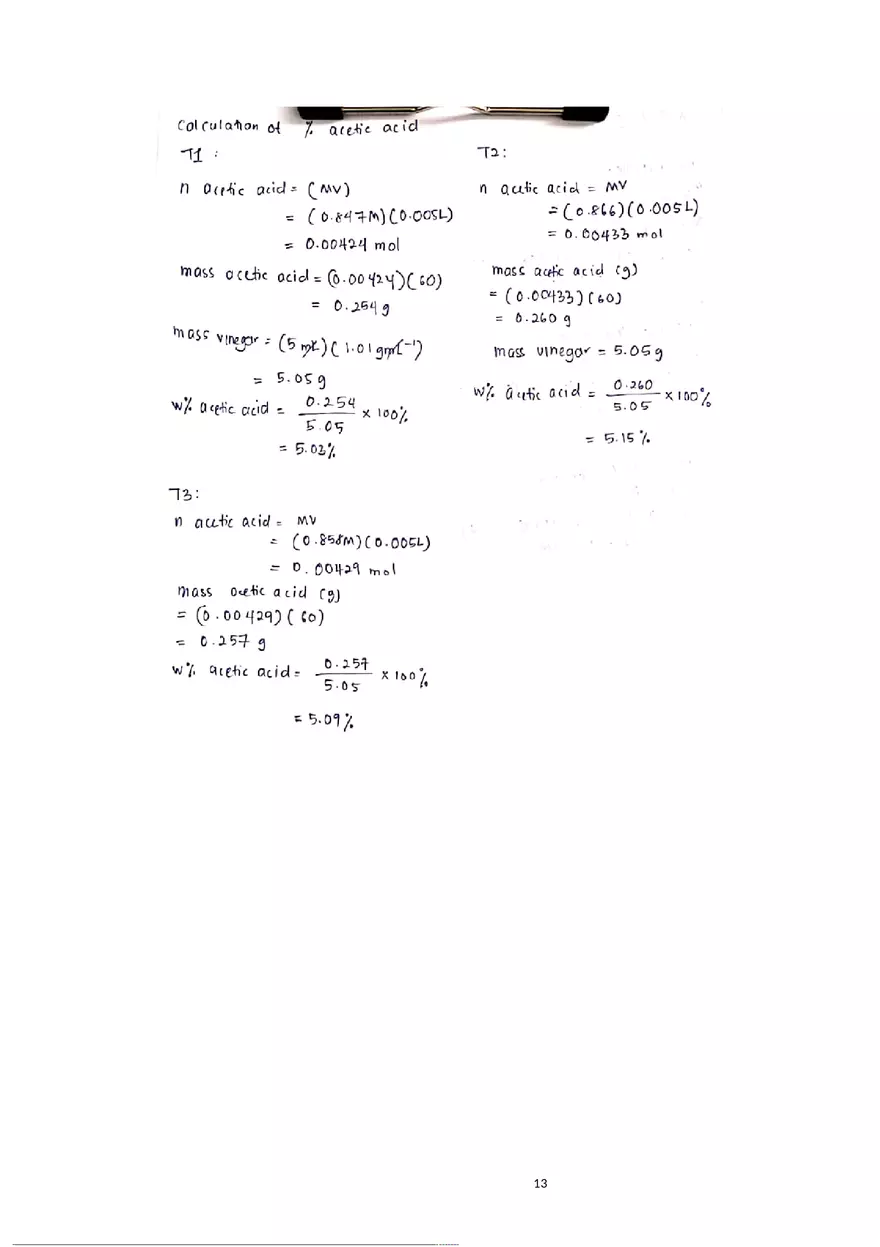 Calculation of % acetic acid
T1 :
n acetic acid = (MV)
= (0.847M)(0.005L)
= 0.00424 mol
mass acetic acid = (0.00424)(60)
= 0.254 g
mass vinegar = (5 mL)(1.01 gmL⁻¹)
= 5.05 g
w% acetic acid = 0.254 / 5.05 × 100%
= 5.03%
T2 :
n acetic acid = MV
= (0.866)(0.005L)
= 0.00433 mol
mass acetic acid (g)
= (0.00433)(60)
= 0.260 g
mass vinegar = 5.05 g
w% acetic acid = 0.260 / 5.05 × 100%
= 5.15 %
T3 :
n acetic acid = MV
= (0.858M)(0.005L)
= 0.00429 mol
mass acetic acid (g)
= (0.00429)(60)
= 0.257 g
w% acetic acid = 0.257 / 5.05 × 100%
= 5.09%
13